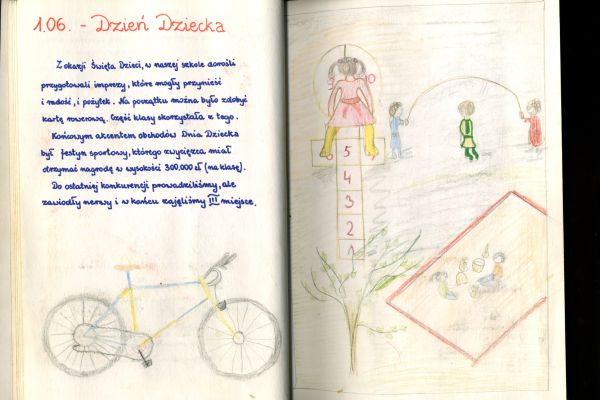 1.06. - Dzień Dziecka
Z okazji Święta Dzieci, w naszej szkole dorośli
przygotowali imprezy, które mogły przynieść
i radość, i pożytek. Na początku można było zdobyć
kartę rowerową. Część klasy skorzystała z tego.
Końcowym akcentem obchodów Dnia Dziecka
był festyn sportowy, którego zwycięzca miał
otrzymać nagrodę w wysokości 300.000 zł (na klasę).
Do ostatniej konkurencji prowadziliśmy, ale
zawiodły nerwy i w końcu zajęliśmy III miejsce.
9 10
5
4
3
2
1